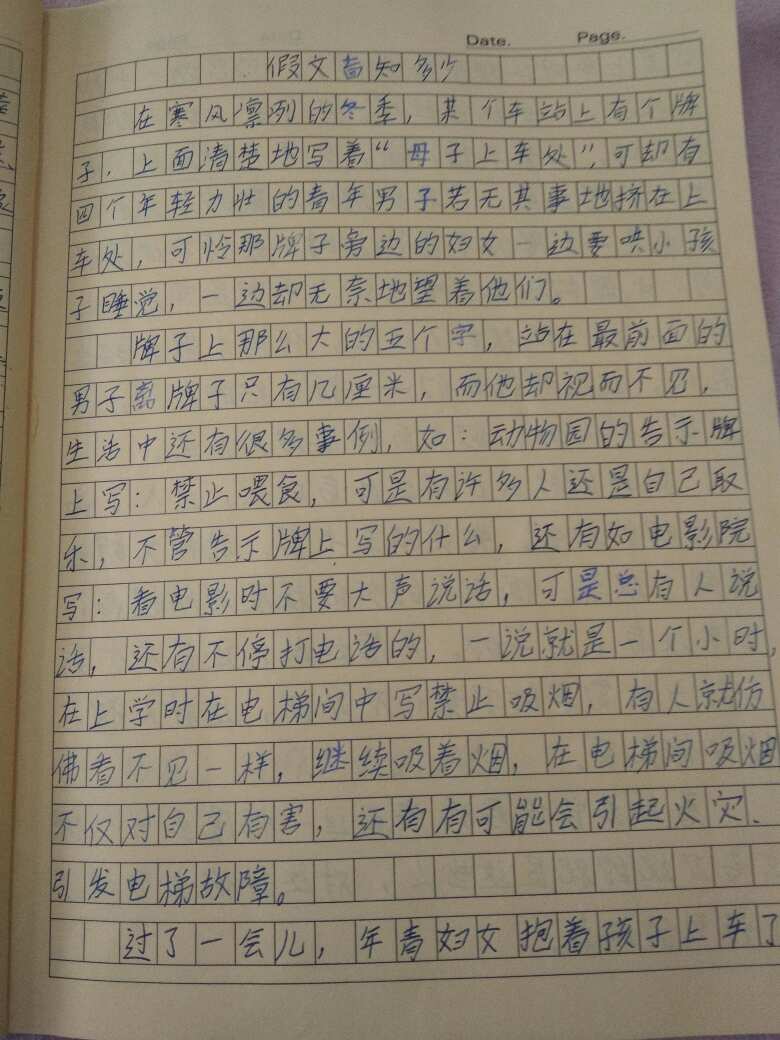 Date. Page.
假文盲知多少
在寒风凛冽的冬季，某个车站上有个牌
子，上面清楚地写着“母子上车处”，可却有
四个年轻力壮的青年男子若无其事地挤在上
车处，可怜那牌子旁边的妇女一边要哄小孩
子睡觉，一边却无奈地望着他们。
牌子上那么大的五个字，站在最前面的
男子离牌子只有几厘米，而他却视而不见，
生活中还有很多事例，如：动物园的告示牌
上写：禁止喂食，可是有许多人还是自己取
乐，不管告示牌上写的什么，还有如电影院
写：看电影时不要大声说话，可是总有人说
话，还有不停打电话的，一说就是一个小时，
在上学时在电梯间中写禁止吸烟，有人就仿
佛看不见一样，继续吸着烟，在电梯间吸烟
不仅对自己有害，还有有可能会引起火灾、
引发电梯故障。
过了一会儿，年青妇女抱着孩子上车了